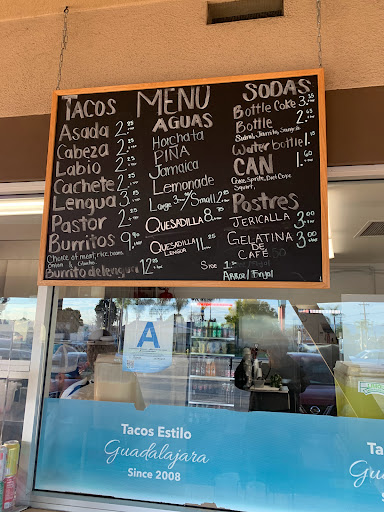 TACOS
Asada 2.25
Cabeza 2.25
Labio 2.25
Cachete 2.25
Lengua 3.25
Pastor 2.25
Burritos 9.90
Choice of meat, rice, beans,
Onion & Cilantro
Burrito de lengua 12.25
MENU
AGUAS
Horchata
PIÑA
Jamaica
Lemonade
Large 3.50/Small 2.25
QUESADILLA 8.25
QUESADILLA 11.25
LENGUA
Side
Arroz/Frijol
SODAS
Bottle Coke 3.
Bottle 2.
Sidral, Jarrito, Sangria
Water bottle 1.
CAN 1.60
Coke, Sprite, Diet Coke
Squirt,
Postres
JERICALLA 3.00
GELATINA 3.00
DE
CAFE
A
Tacos Estilo
Guadalajara
Since 2008
Ta
Gu
S